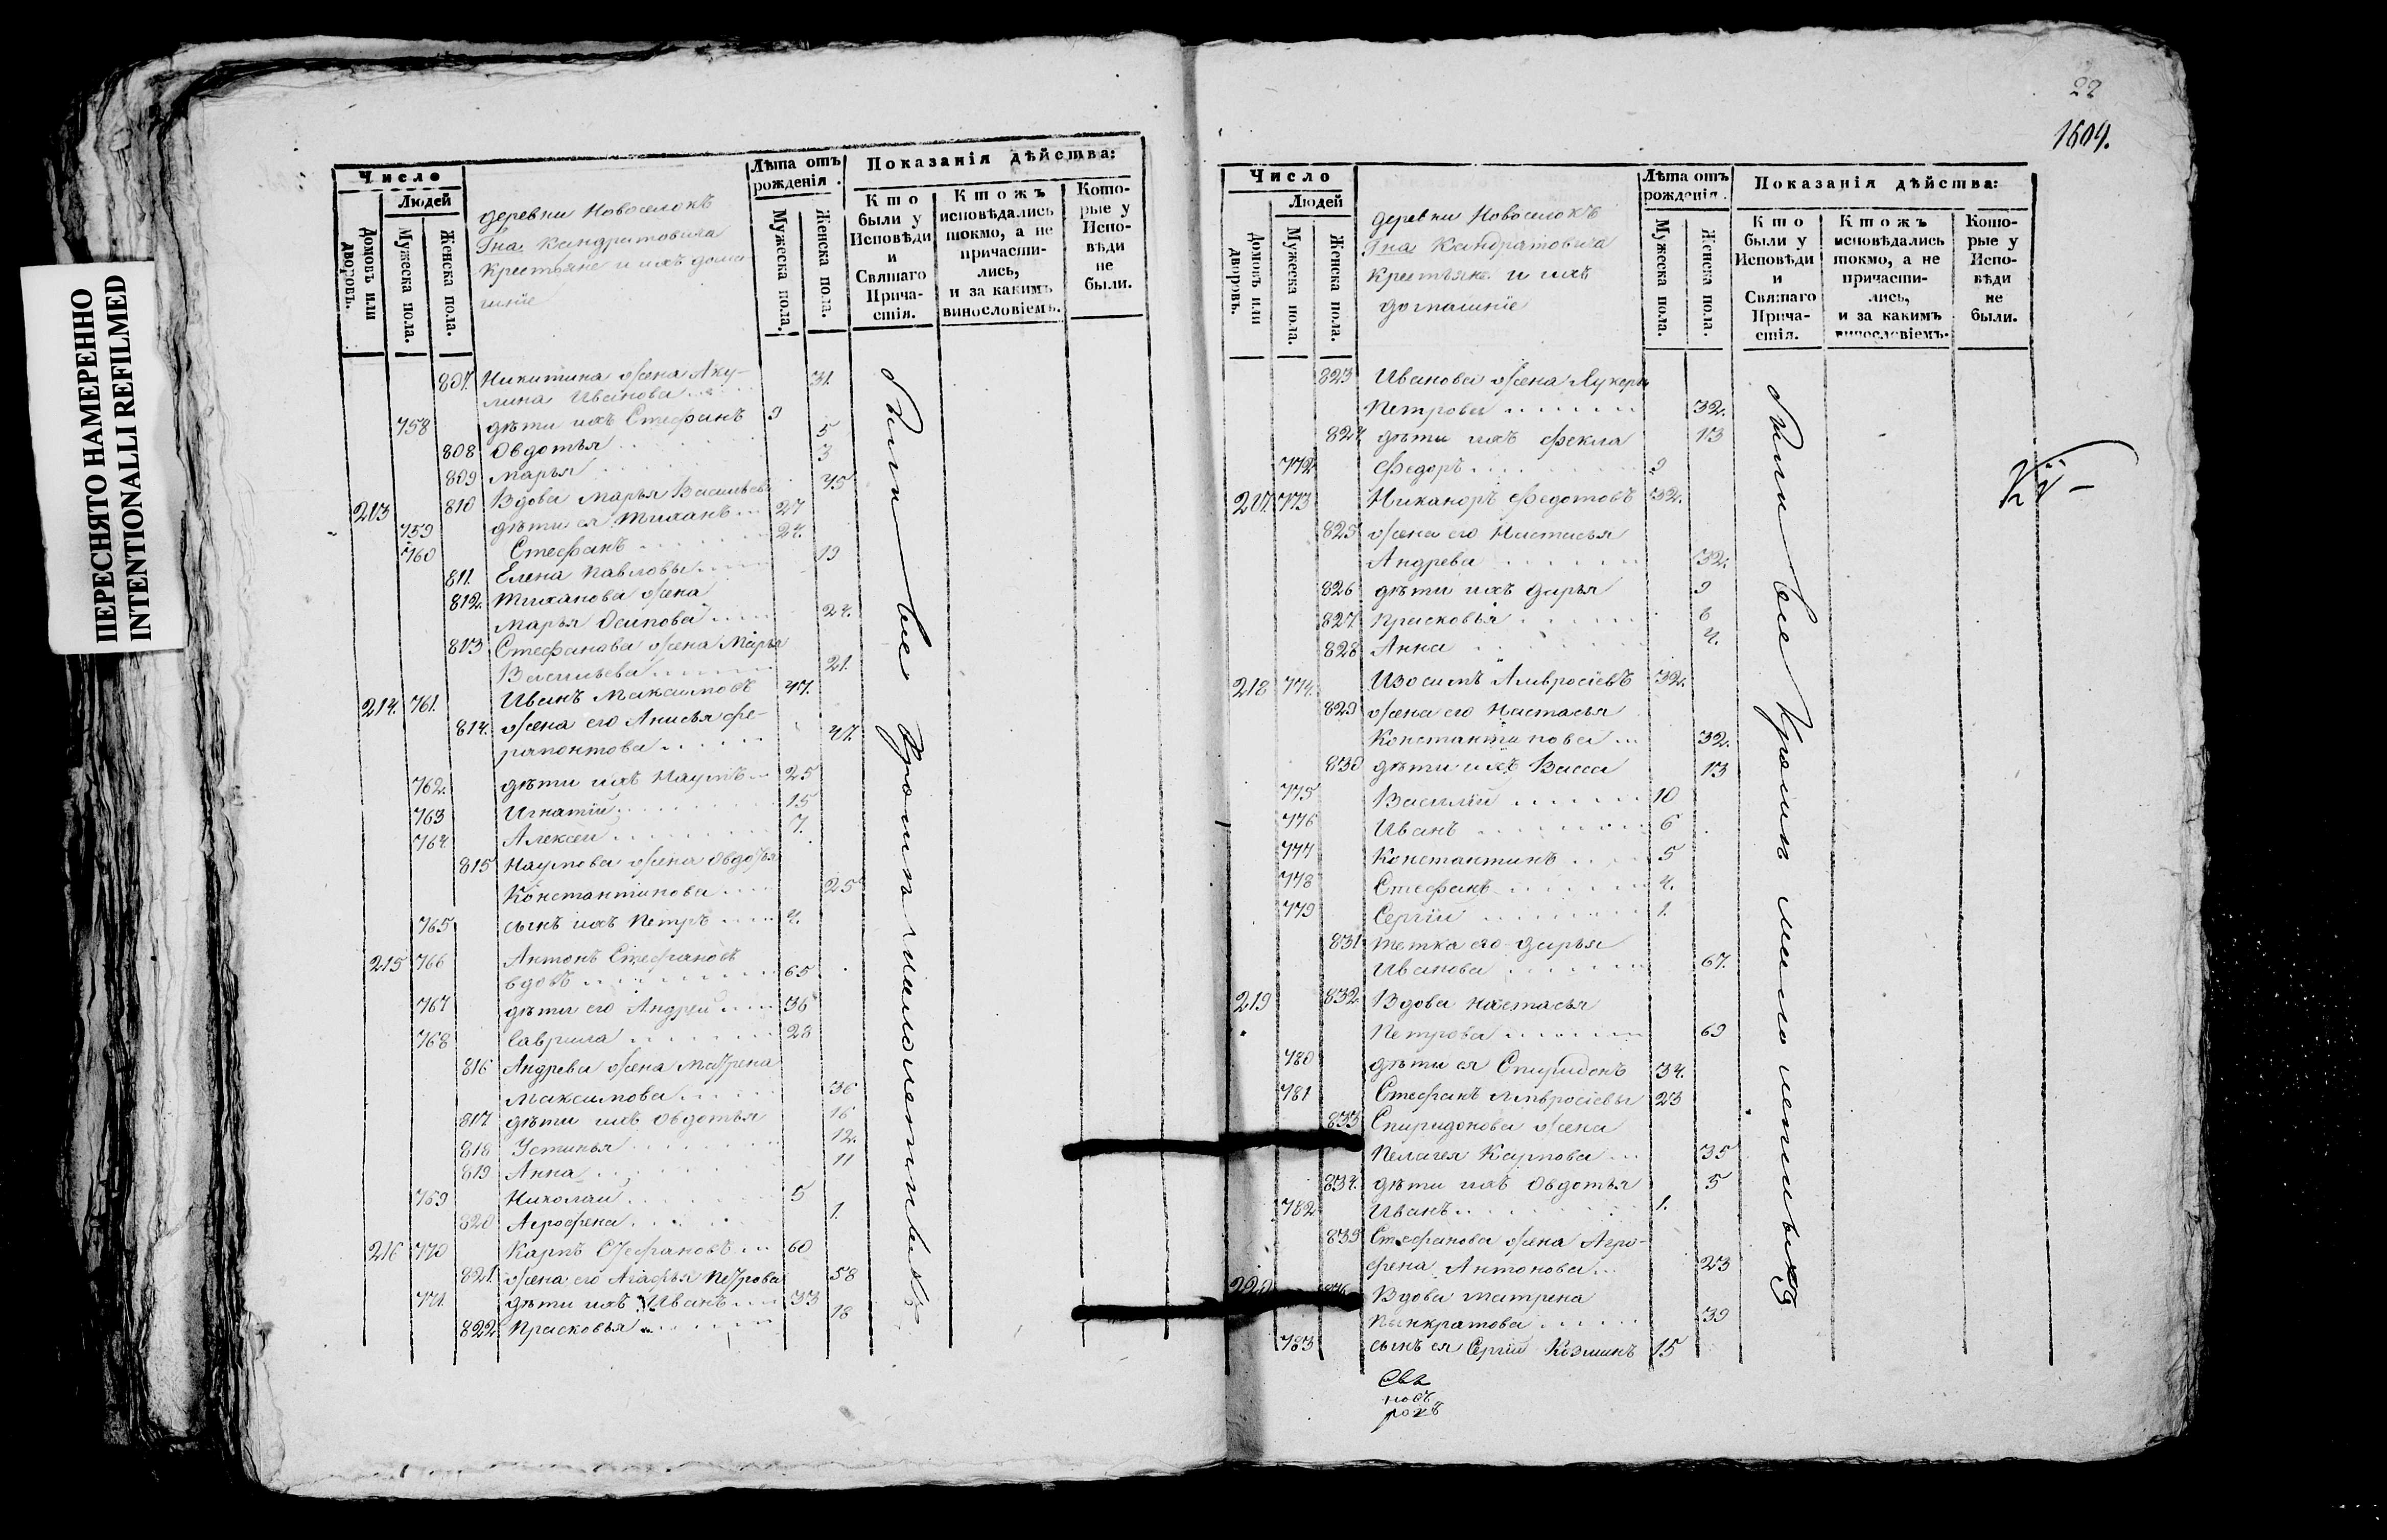 ПЕРЕСНЯТО НАМЕРЕННО
INTENTIONALLI REFILMED
Число
Людей
Домовъ или дворовъ.
Мужеска пола.
Женска пола.
деревни Новоселокъ
Гна Кандратовича
Крестьяне и ихъ дома
шніе
Лѣта отъ рожденія.
Мужеска пола.
Женска пола.
Показанія дѣйства:
Кто были у Исповѣди и Святаго Причастія.
Ктожъ исповѣдались токмо, а не причастились, и за какимъ винословіемъ.
Которые у Исповѣди не были.
807. Никитина жена Аку-
лина Иванова 31.
758 дѣти ихъ Стефанъ 9
808 Овдотья 5
809 Марья 3
213 810 Вдова Марья Васильева 45
759 дѣти ея Тиханъ 27
760 Стефанъ 24.
811. Елена Павловы 19
812. Тиханова жена
Марья Осипова 24.
813 Стефанова жена Марья
Васильева 21.
214. 761. Иванъ Максимовъ 47.
814. жена его Анисья Фе-
рапонтова 47.
762. дѣти ихъ Наумъ 25
763 Игнатій 15
764 Алексей 7.
815 Наумова жена Овдотья
Константинова 25
765 сынъ ихъ Петръ 4.
215 766 Антонъ Стефановъ
вдовъ 65
767 дѣти его Андрей 36
768 Гаврила 28
816 Андрева жена Матрена
Максимова 36
817 дѣти ихъ Овдотья 16
818 Устинья 12.
819 Анна 11
769 Николай 5
820 Агрофена 1.
216 770 Карпъ Стефановъ 60
821. жена его Агафья Петрова 58
771. дѣти ихъ Иванъ 33
822 Прасковья 18
были все кроми малолетныхъ
22
1604.
Число
Людей
Домовъ или дворовъ.
Мужеска пола.
Женска пола.
деревни Новоселокъ
Гна Кандратовича
Крестьяне и ихъ
домашніе
Лѣта отъ рожденія.
Мужеска пола.
Женска пола.
Показанія дѣйства:
Кто были у Исповѣди и Святаго Причастія.
Ктожъ исповѣдались токмо, а не причастились, и за какимъ винословіемъ.
Которые у Исповѣди не были.
823 Иванова жена Лукерья
Петрова 32.
824 дѣти ихъ Фекла 13
772 Федоръ 9
217. 773 Никаноръ Федотовъ 32.
825 жена его Настасья
Андрева 32.
826 дѣти ихъ Дарья 9
827. Прасковья 6
828 Анна 4.
218 774. Изосимъ Амвросіевъ 32.
829 жена его Настасья
Константинова 32.
830 дѣти ихъ Васса 13
775 Василій 10
776 Иванъ 6
777 Константинъ 5
778 Стефанъ 4.
779 Сергій 1.
831 тетка его Дарья
Иванова 67.
219 832 Вдова Настасья
Петрова 69
780 дѣти ея Спиридонъ 34.
781 Стефанъ Амвросіевы 23
833 Спиридонова жена
Пелагея Карпова 35
834. дѣти ихъ Овдотья 5
782 Иванъ 1.
835 Стефанова жена Агро-
фена Антонова 23
220 836 Вдова Матрена
Панкратова 39
783 сынъ ея Сергій Козминъ 15
были все кроми малолетныхъ